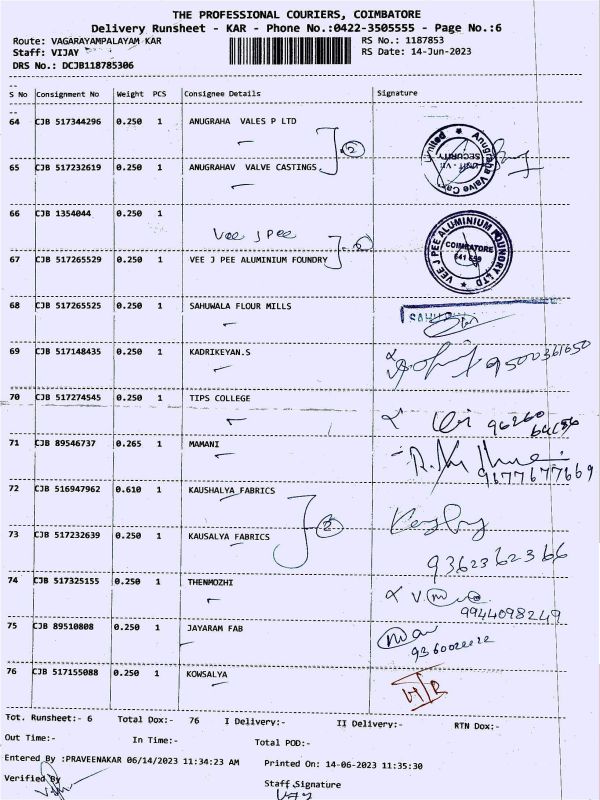 THE PROFESSIONAL COURIERS, COIMBATORE
Delivery Runsheet - KAR - Phone No.:0422-3505555 - Page No.:6
Route: VAGARAYAMPALAYAM KAR
RS No.: 1187853
Staff: VIJAY
RS Date: 14-Jun-2023
DRS No.: DCJB118785306
S No Consignment No Weight PCS Consignee Details Signature
64 CJB 517344296 0.250 1 ANUGRAHA VALES P LTD
65 CJB 517232619 0.250 1 ANUGRAHAV VALVE CASTINGS
2
66 CJB 1354044 0.250 1
Vee J Pee
67 CJB 517265529 0.250 1 VEE J PEE ALUMINIUM FOUNDRY
VEE J PEE ALUMINIUM FOUNDRY LTD
COIMBATORE
68 CJB 517265525 0.250 1 SAHUWALA FLOUR MILLS
69 CJB 517148435 0.250 1 KADRIKEYAN.S
70 CJB 517274545 0.250 1 TIPS COLLEGE
71 CJB 89546737 0.265 1 MAMANI
9677677669
72 CJB 516947962 0.610 1 KAUSHALYA FABRICS
2
73 CJB 517232639 0.250 1 KAUSALYA FABRICS
9362362366
74 CJB 517325155 0.250 1 THENMOZHI
9944098249
75 CJB 89510808 0.250 1 JAYARAM FAB
76 CJB 517155088 0.250 1 KOWSALYA
Tot. Runsheet:- 6 Total Dox:- 76 I Delivery:- II Delivery:- RTN Dox:-
Out Time:- In Time:- Total POD:-
Entered By :PRAVEENAKAR 06/14/2023 11:34:23 AM Printed On: 14-06-2023 11:35:30
Verified By Staff Signature